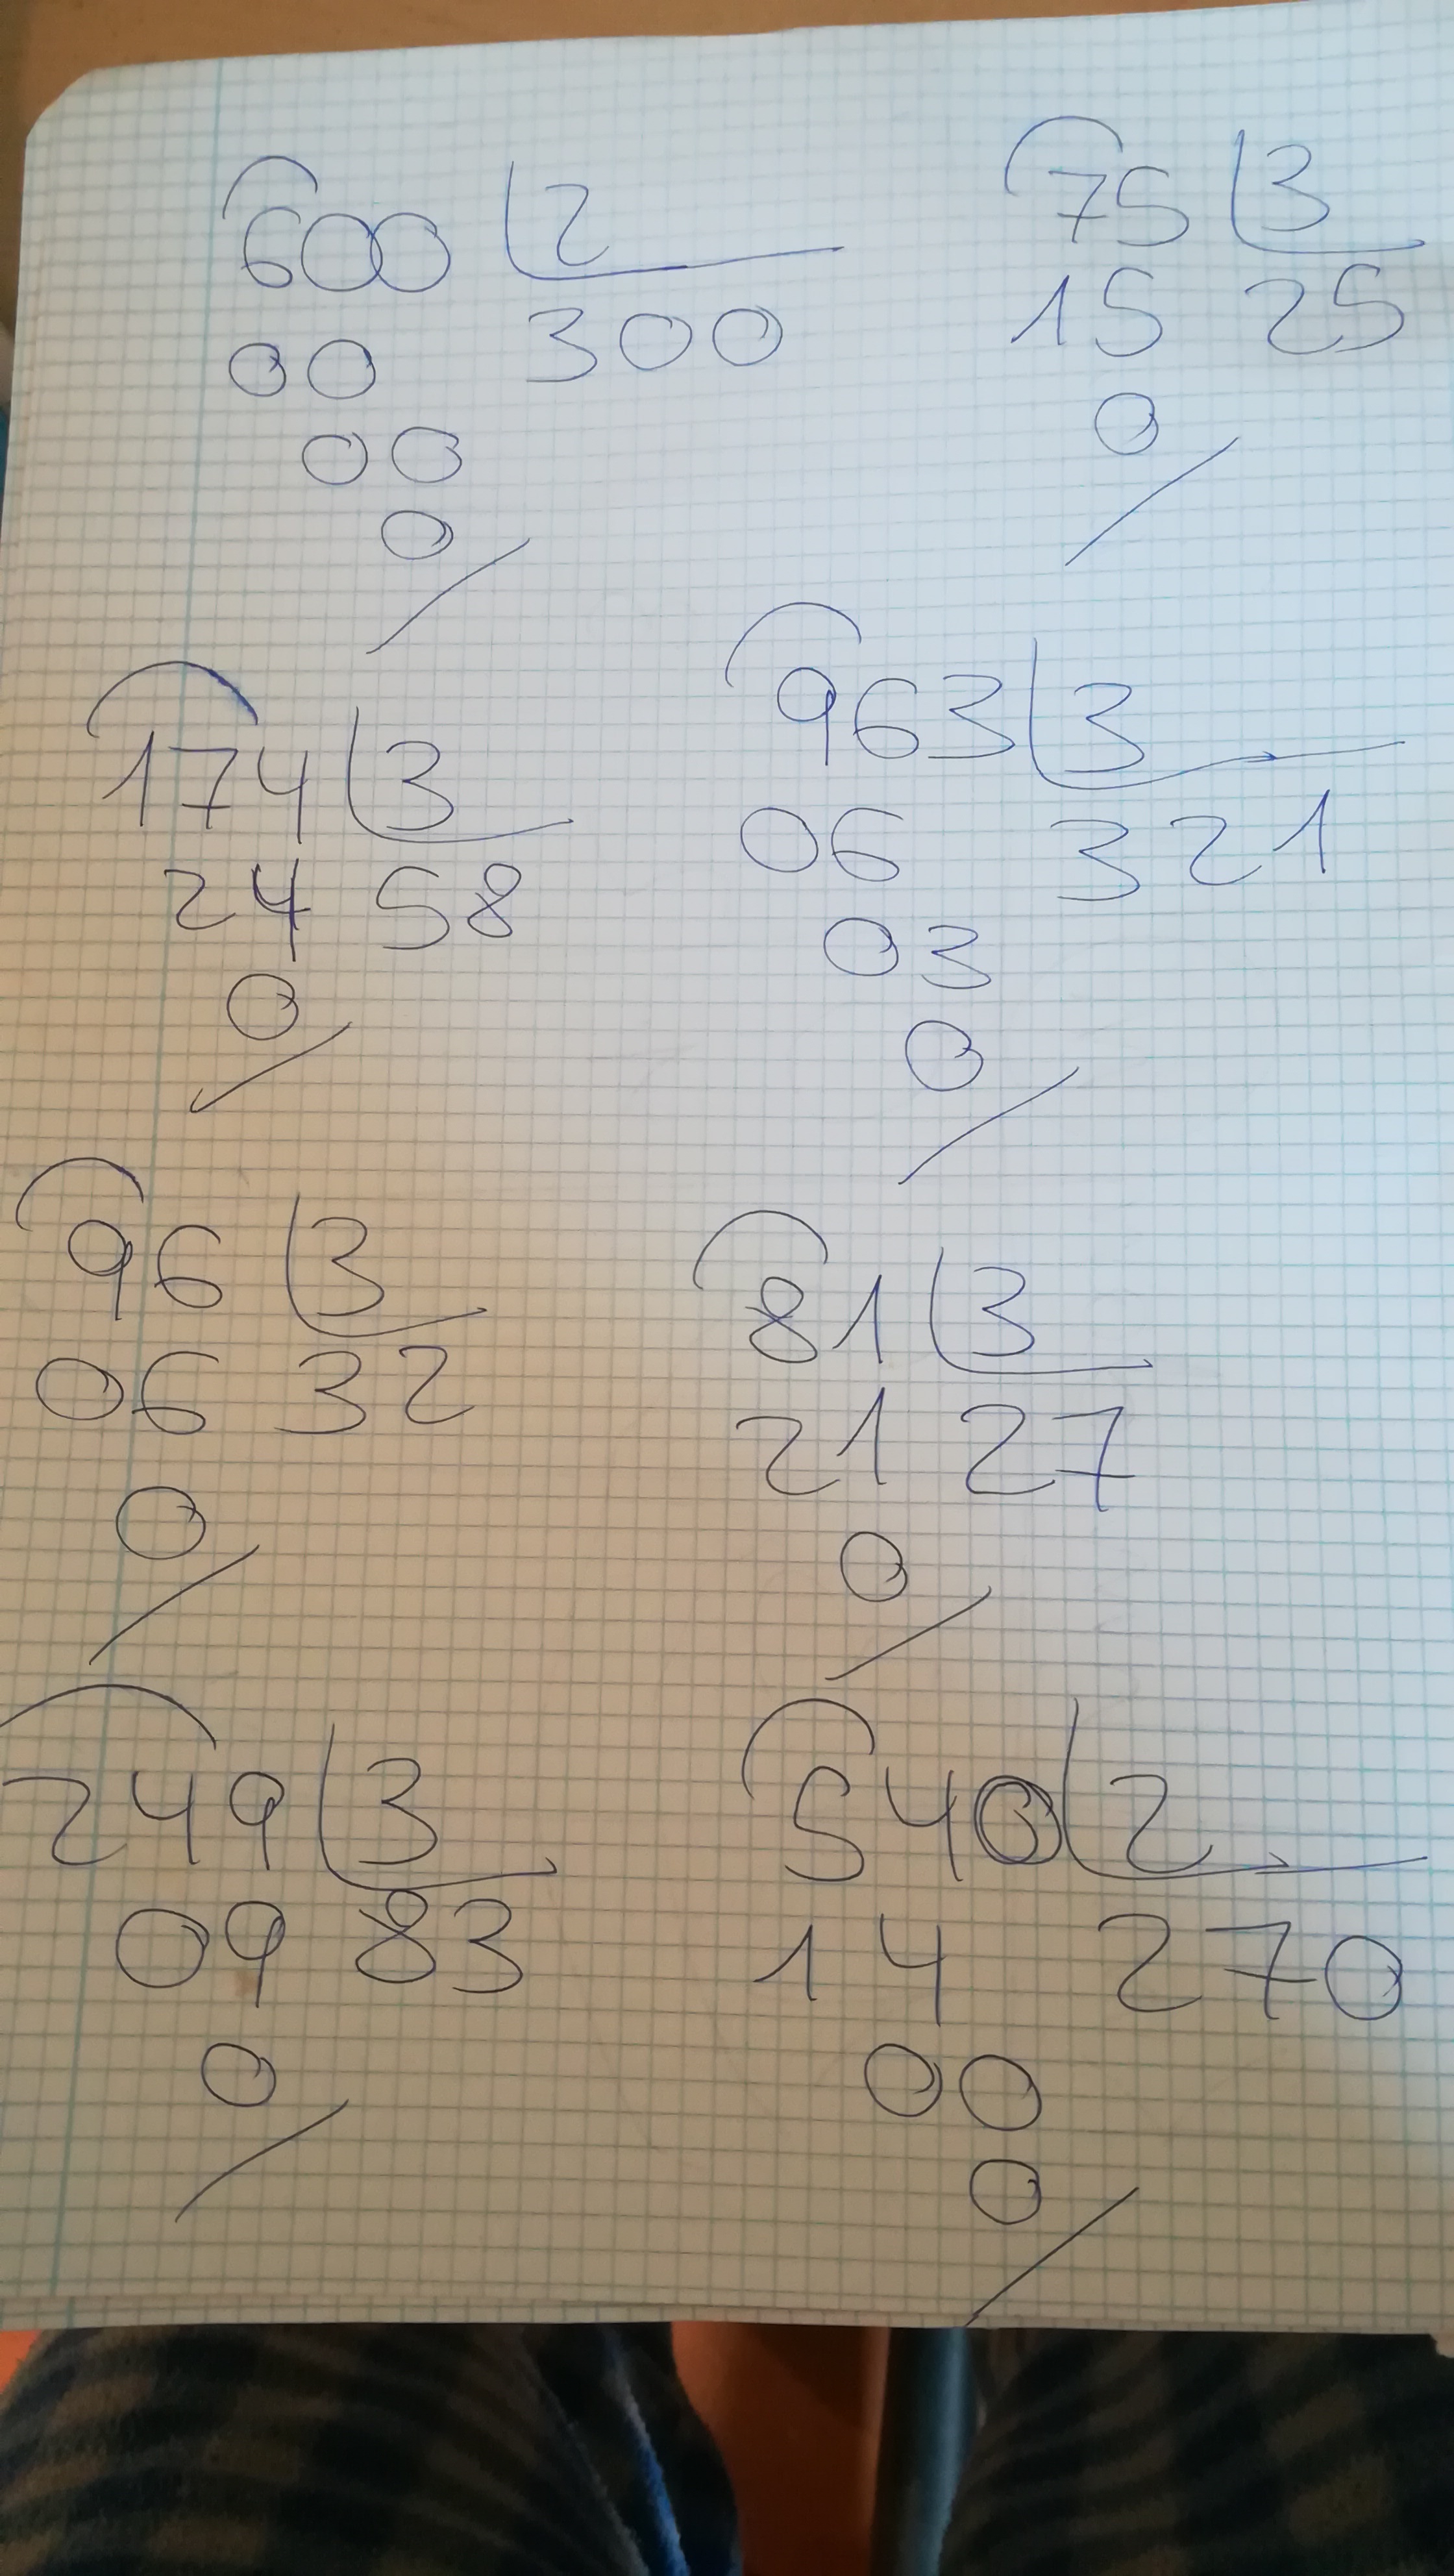 600 2
00 300
00
0
75 3
15 25
0
174 3
24 58
0
963 3
06 321
03
0
96 3
06 32
0
81 3
21 27
0
249 3
09 83
0
540 2
14 270
00
0